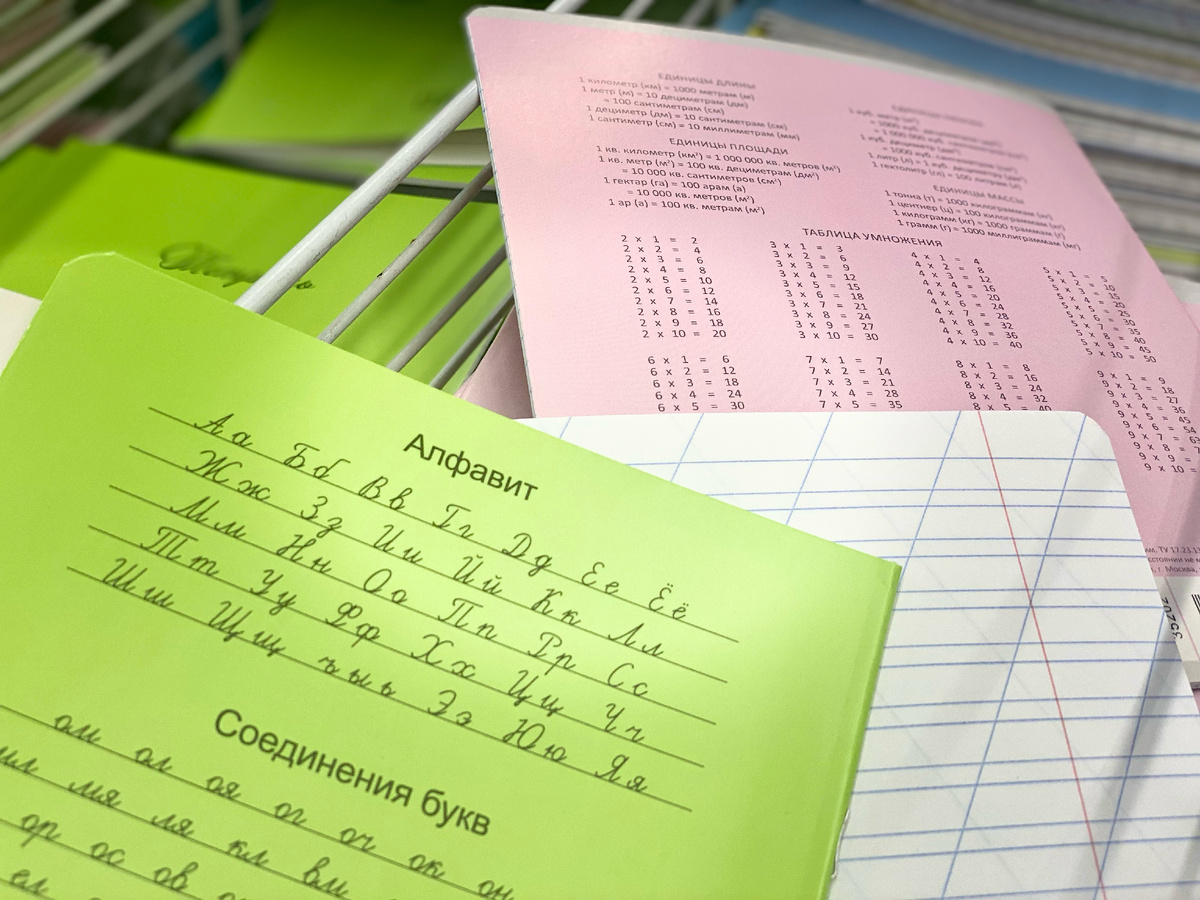 ЕДИНИЦЫ ДЛИНЫ
1 километр (км) = 1000 метрам (м)
1 метр (м) = 10 дециметрам (дм)
= 100 сантиметрам (см)
1 дециметр (дм) = 10 сантиметрам (см)
1 сантиметр (см) = 10 миллиметрам (мм)
ЕДИНИЦЫ ПЛОЩАДИ
1 кв. километр (км²) = 1 000 000 кв. метров (м²)
1 кв. метр (м²) = 100 кв. дециметрам (дм²)
= 10 000 кв. сантиметров (см²)
1 гектар (га) = 100 арам (а)
= 10 000 кв. метров (м²)
1 ар (а) = 100 кв. метрам (м²)
1 куб. метр (м³)
= 1000 куб. дециметрам
= 1 000 000 куб.
1 куб. дециметр (дм³)
= 1000 куб. сантиметрам
1 литр (л) = 1 куб. дециметру (дм³)
1 гектолитр (гл) = 100 литрам (л)
ЕДИНИЦЫ МАССЫ
1 тонна (т) = 1000 килограммам (кг)
1 центнер (ц) = 100 килограммам (кг)
1 килограмм (кг) = 1000 граммам (г)
1 грамм (г) = 1000 миллиграммам (мг)
ТАБЛИЦА УМНОЖЕНИЯ
2 x 1 = 2
2 x 2 = 4
2 x 3 = 6
2 x 4 = 8
2 x 5 = 10
2 x 6 = 12
2 x 7 = 14
2 x 8 = 16
2 x 9 = 18
2 x 10 = 20
3 x 1 = 3
3 x 2 = 6
3 x 3 = 9
3 x 4 = 12
3 x 5 = 15
3 x 6 = 18
3 x 7 = 21
3 x 8 = 24
3 x 9 = 27
3 x 10 = 30
4 x 1 = 4
4 x 2 = 8
4 x 3 = 12
4 x 4 = 16
4 x 5 = 20
4 x 6 = 24
4 x 7 = 28
4 x 8 = 32
4 x 9 = 36
4 x 10 = 40
5 x 1 = 5
5 x 2 = 10
5 x 3 = 15
5 x 4 = 20
5 x 5 = 25
5 x 6 = 30
5 x 7 = 35
5 x 8 = 40
5 x 9 = 45
5 x 10 = 50
6 x 1 = 6
6 x 2 = 12
6 x 3 = 18
6 x 4 = 24
6 x 5 = 30
7 x 1 = 7
7 x 2 = 14
7 x 3 = 21
7 x 4 = 28
7 x 5 = 35
8 x 1 = 8
8 x 2 = 16
8 x 3 = 24
8 x 4 = 32
8 x 5 = 40
9 x 1 = 9
9 x 2 = 18
9 x 3 = 27
9 x 4 = 36
9 x 5 = 45
9 x 6 = 54
9 x 7 = 63
9 x 8 = 7
9 x 9 =
9 x 10 =
Алфавит
Аа Бб Вв Гг Дд Ее Ёё
Жж Зз Ии Йй Кк Лл
Мм Нн Оо Пп Рр Сс
Тт Уу Фф Хх Цц Чч
Шш Щщ ъыь Ээ Юю Яя
Соединения букв
ом ол оя ог оч ок он
мя ля кл вм
ор ос ов
ел